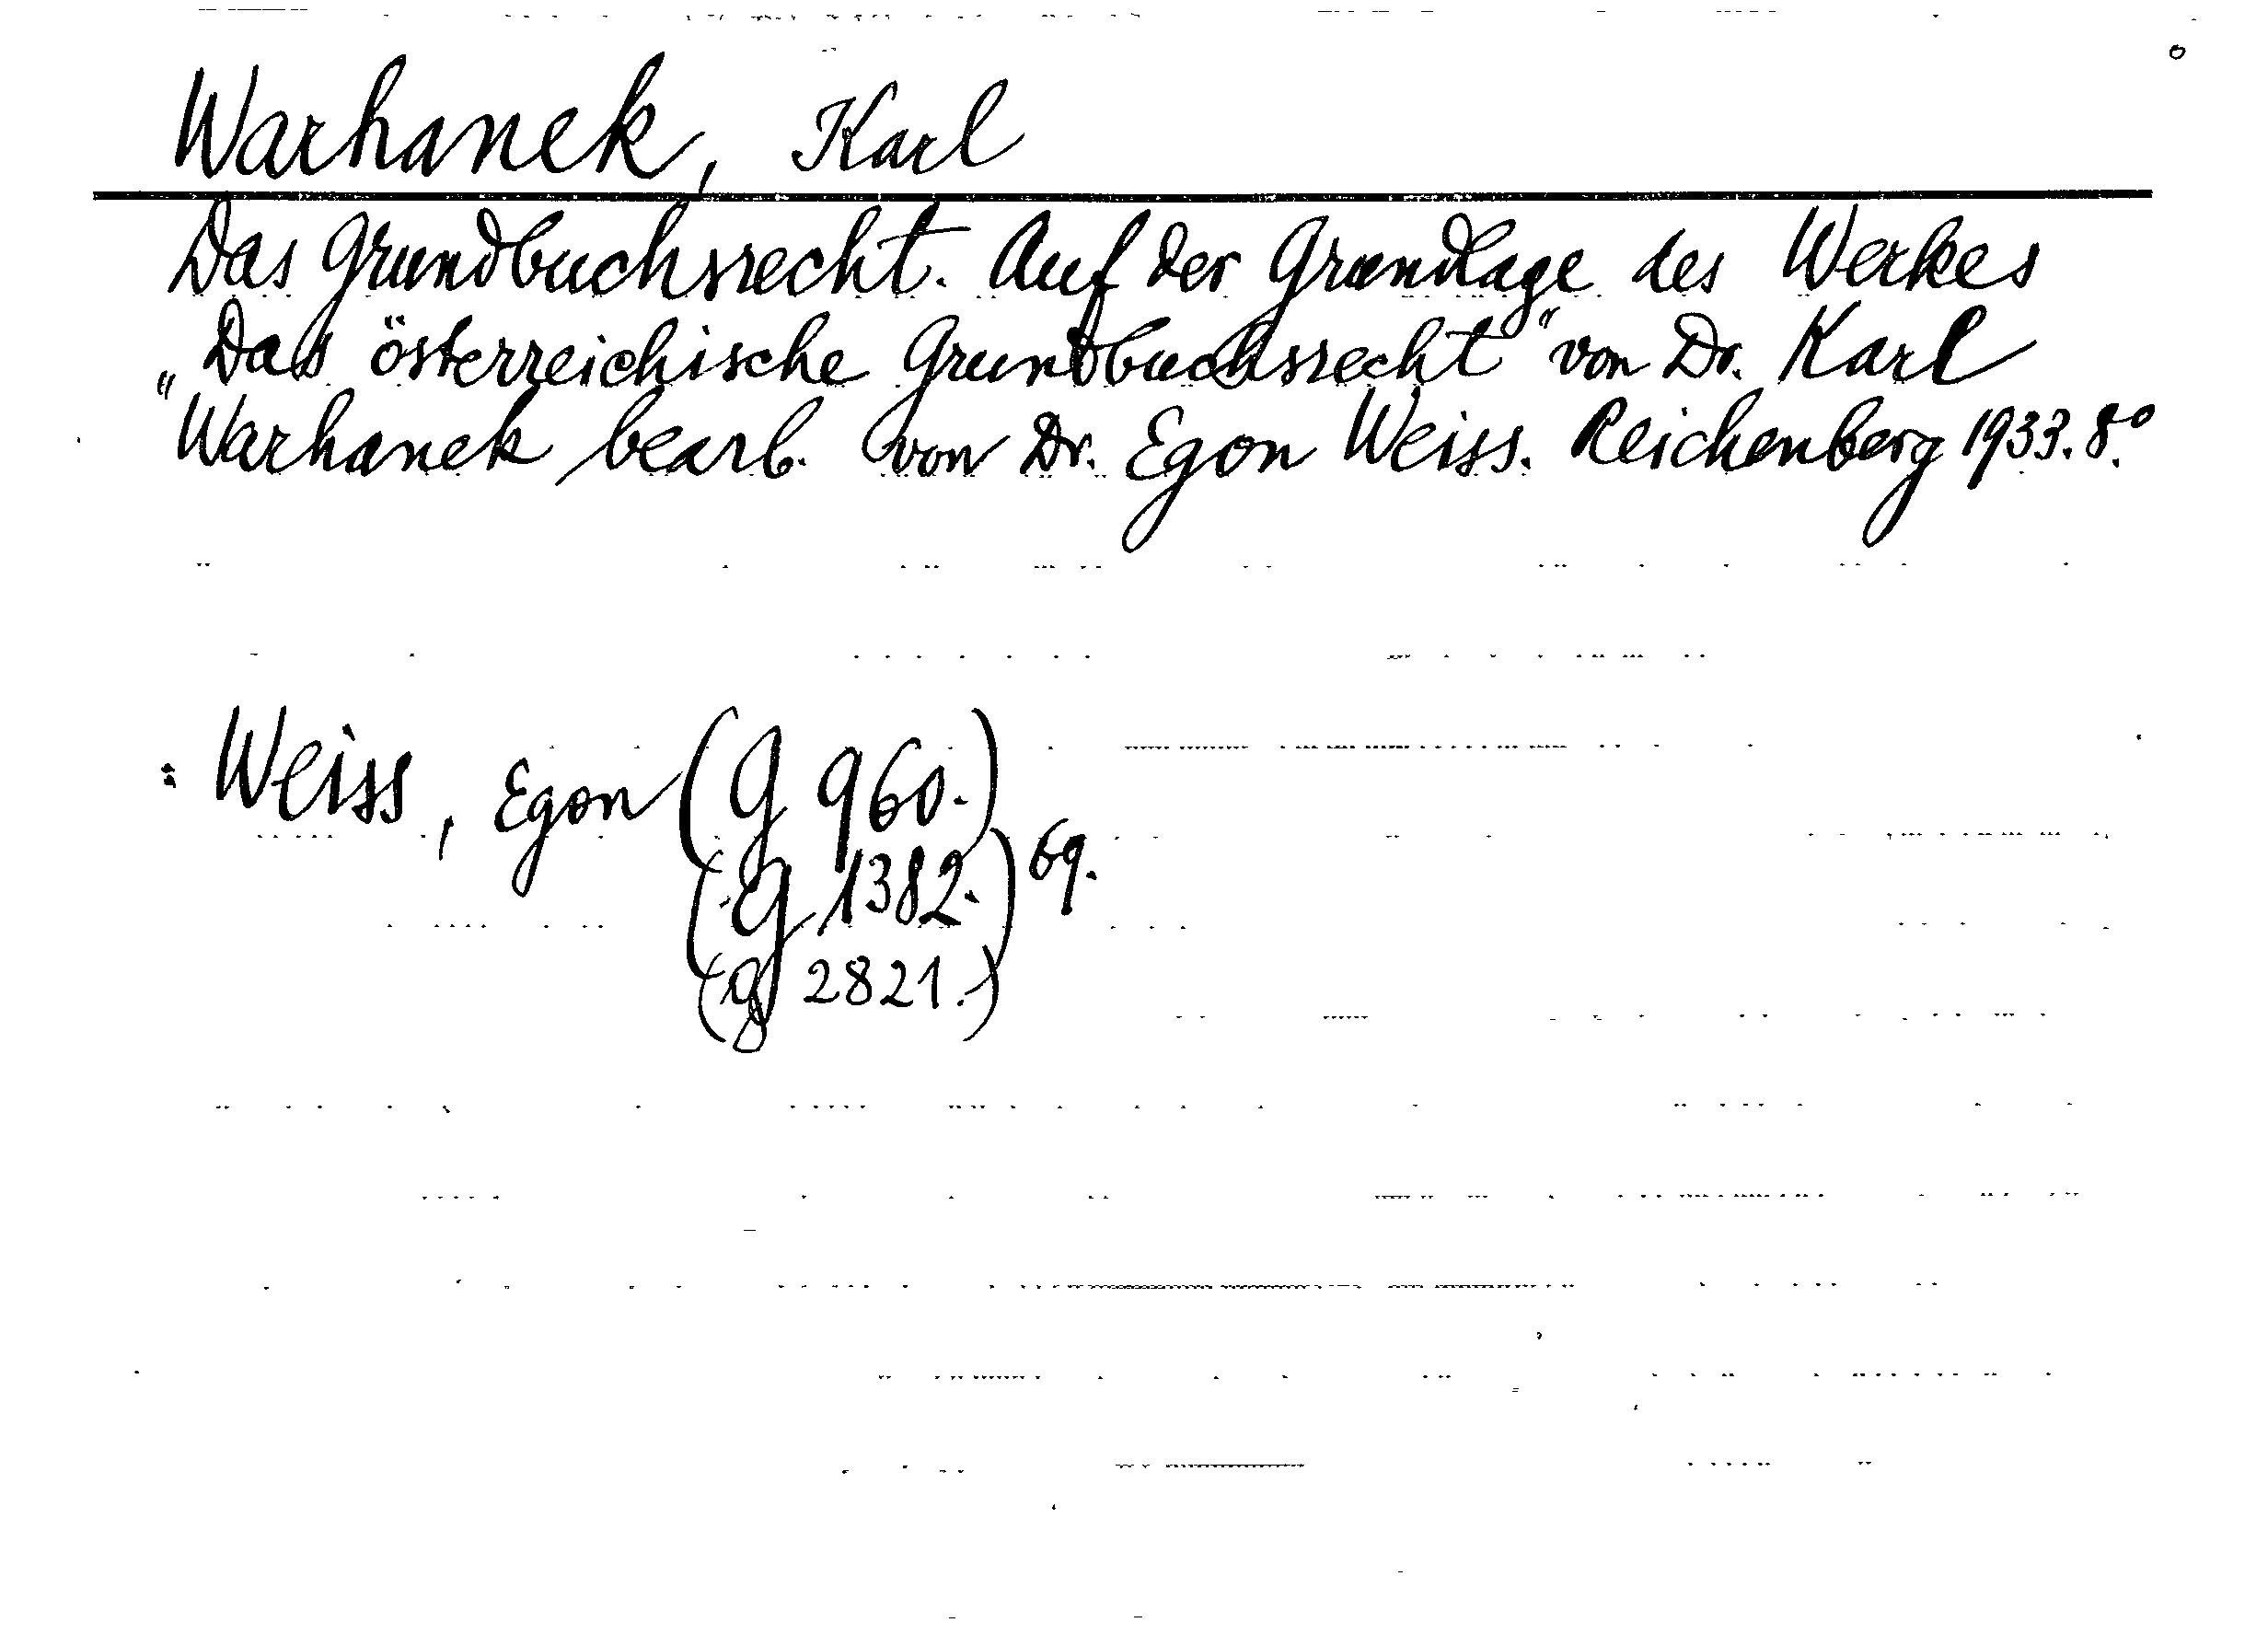 Warhanek, Karl
Das Grundbuchsrecht. Auf der Grundlage des Werkes
„Das österreichische Grundbuchsrecht“ von Dr. Karl
Warhanek bearb. von Dr. Egon Weiss. Reichenberg 1933. 8.°
: Weiss, Egon (G 960.)
(G 1382.) 69.
(G 2821.)